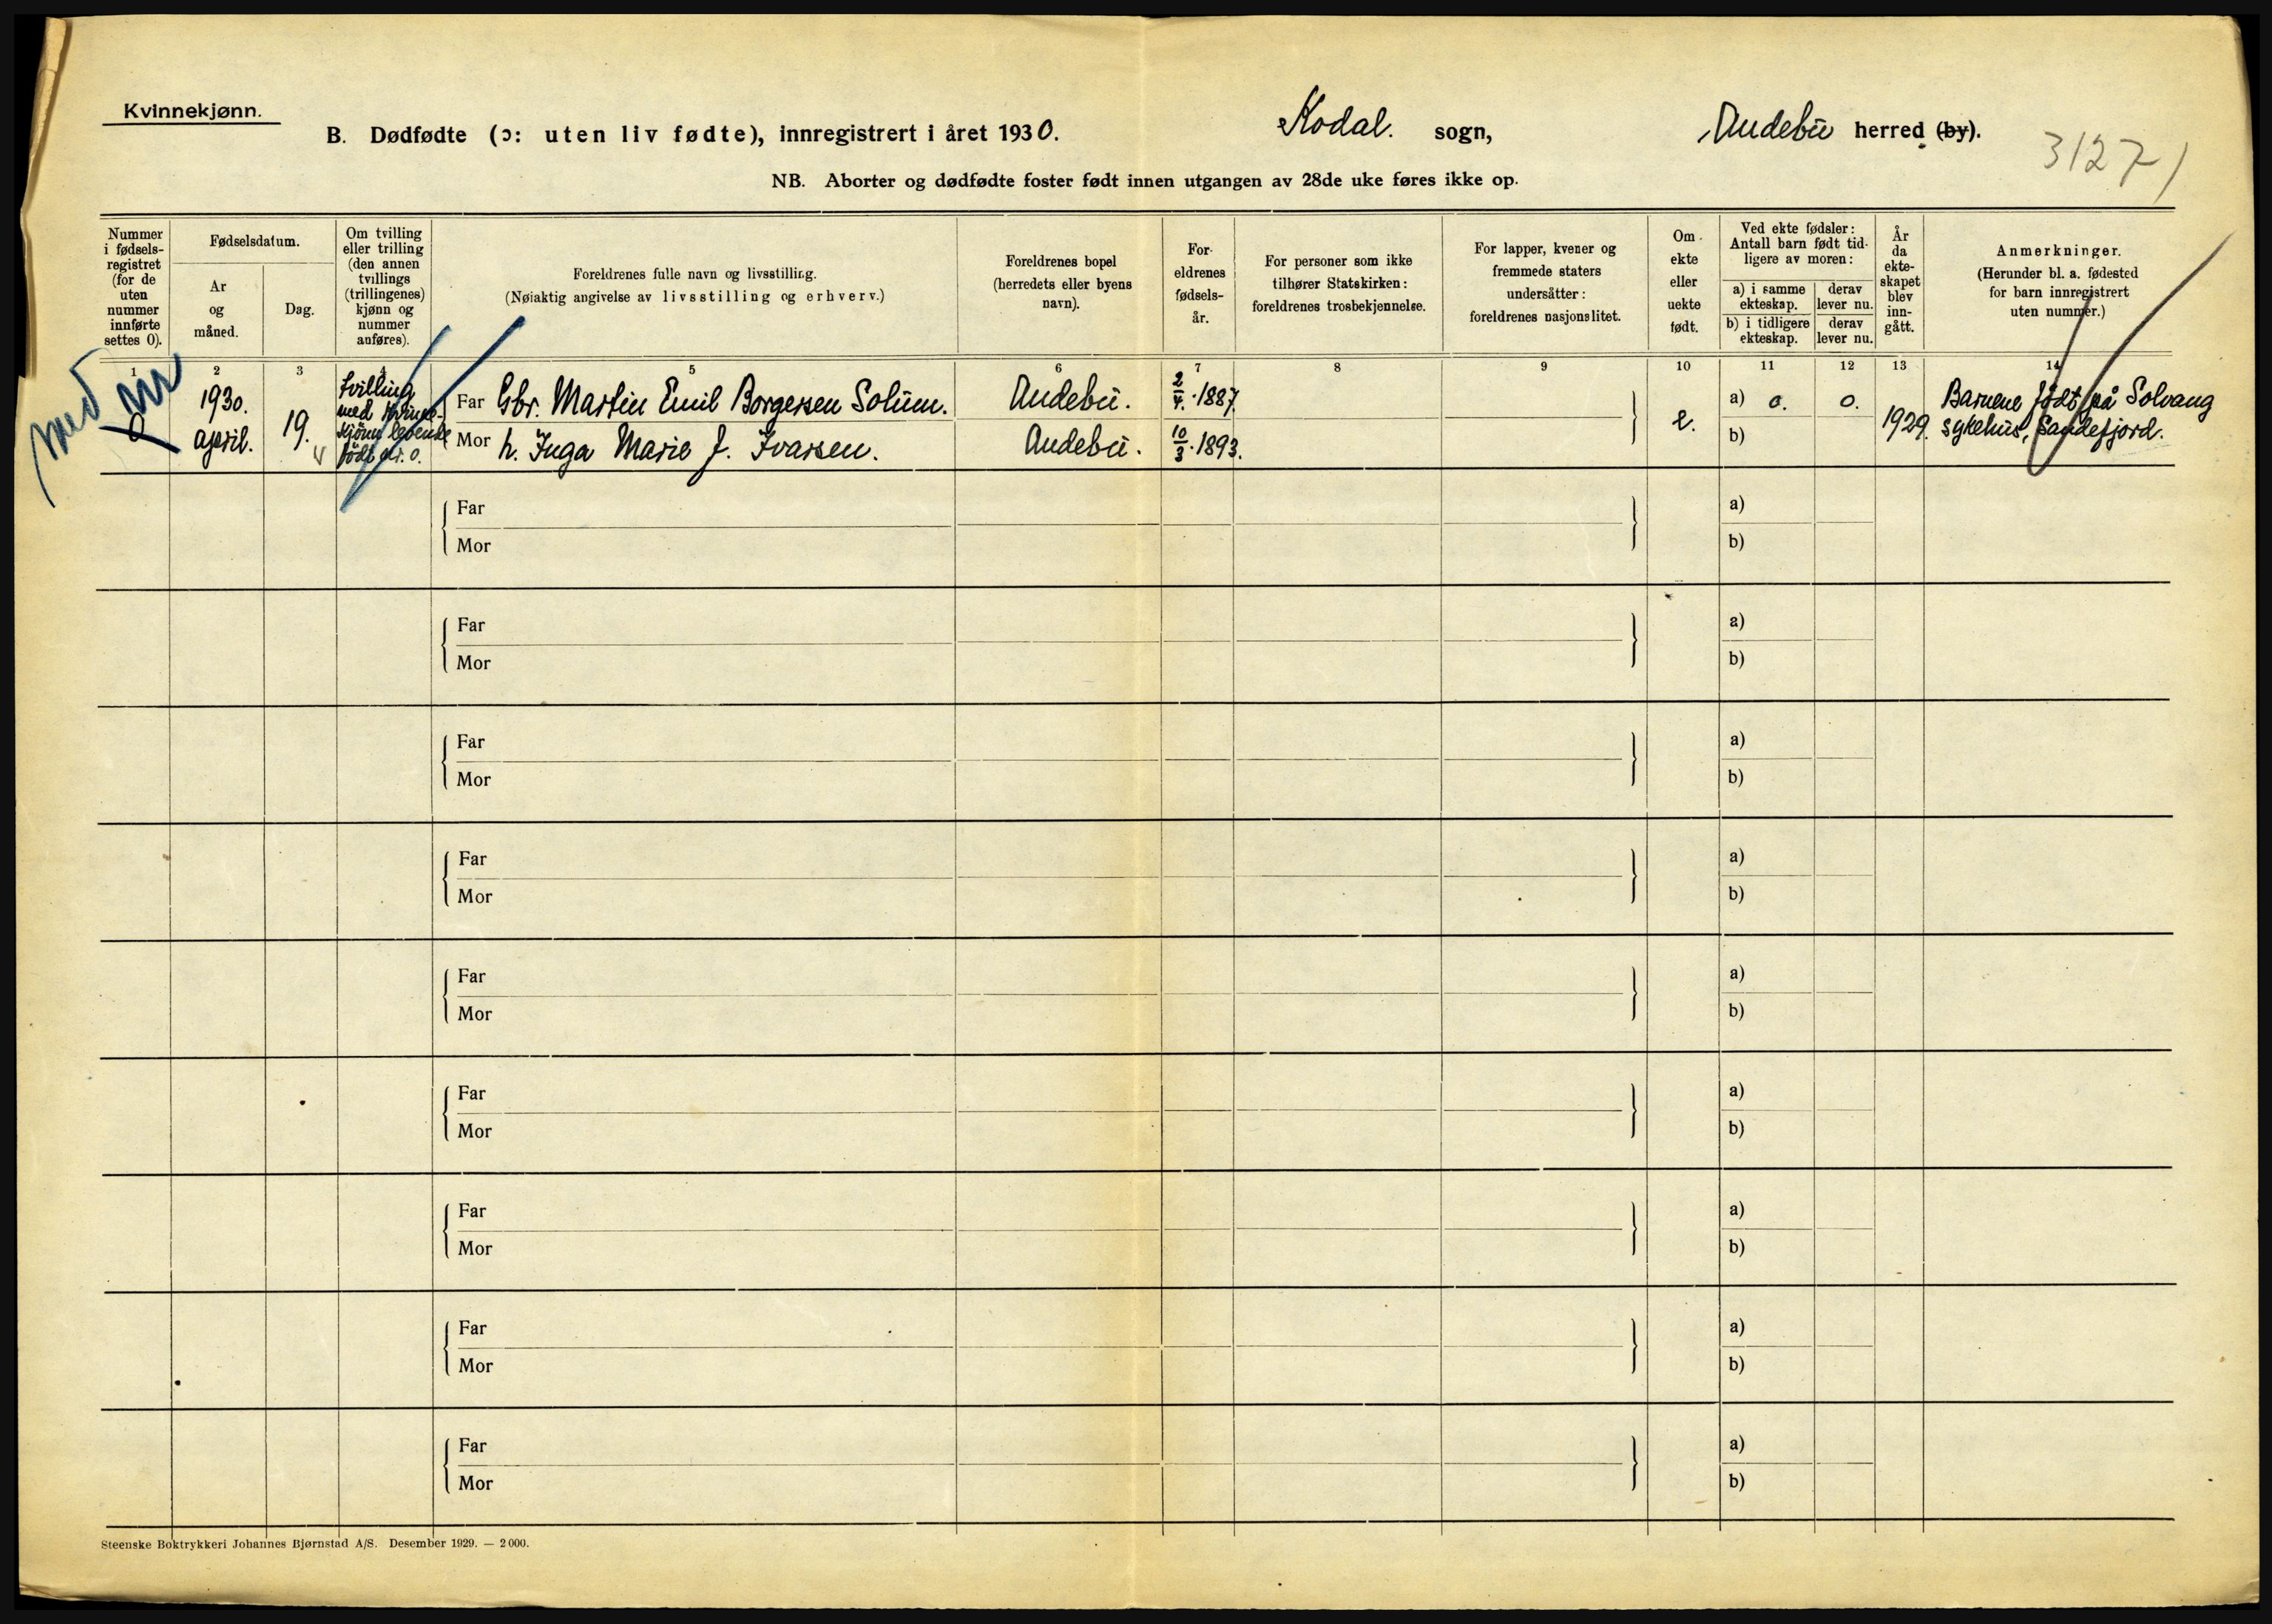 Kvinnekjønn.
B. Dødfødte (ɔ: uten liv fødte), innregistrert i året 1930. Kodal. sogn, Andebu herred (by).
3127/
NB. Aborter og dødfødte foster født innen utgangen av 28de uke føres ikke op.
Nummer i fødsels-registret (for de uten nummer innførte settes 0).
Fødselsdatum.
År og måned.
Dag.
Om tvilling eller trilling (den annen tvillings (trillingenes) kjønn og nummer anføres).
Foreldrenes fulle navn og livsstilling.
(Nøiaktig angivelse av livsstilling og erhverv.)
Foreldrenes bopel (herredets eller byens navn).
For-eldrenes fødsels-år.
For personer som ikke tilhører Statskirken: foreldrenes trosbekjennelse.
For lapper, kvener og fremmede staters undersåtter: foreldrenes nasjonalitet.
Om ekte eller uekte født.
Ved ekte fødsler: Antall barn født tid-ligere av moren:
a) i samme ekteskap.
derav lever nu.
b) i tidligere ekteskap.
derav lever nu.
År da ekte-skapet blev inn-gått.
Anmerkninger.
(Herunder bl. a. fødested for barn innregistrert uten nummer.)
1 2 3 4 5 6 7 8 9 10 11 12 13 14
med nr
0
1930. april.
19.
Tvilling
med kvinne-
kjønn levende
født nr. 0.
Far Gbr. Martin Emil Borgersen Solum. Andebu. 2/4. 1887.
Mor h. Inga Marie f. Ivarsen. Andebu. 10/3. 1893.
e.
a) 0. 0.
b)
1929.
Barnene født på Solvang
sykehus, Sandefjord.
Far a)
Mor b)
Far a)
Mor b)
Far a)
Mor b)
Far a)
Mor b)
Far a)
Mor b)
Far a)
Mor b)
Far a)
Mor b)
Far a)
Mor b)
Far a)
Mor b)
Steenske Boktrykkeri Johannes Bjørnstad A/S. Desember 1929. — 2 000.